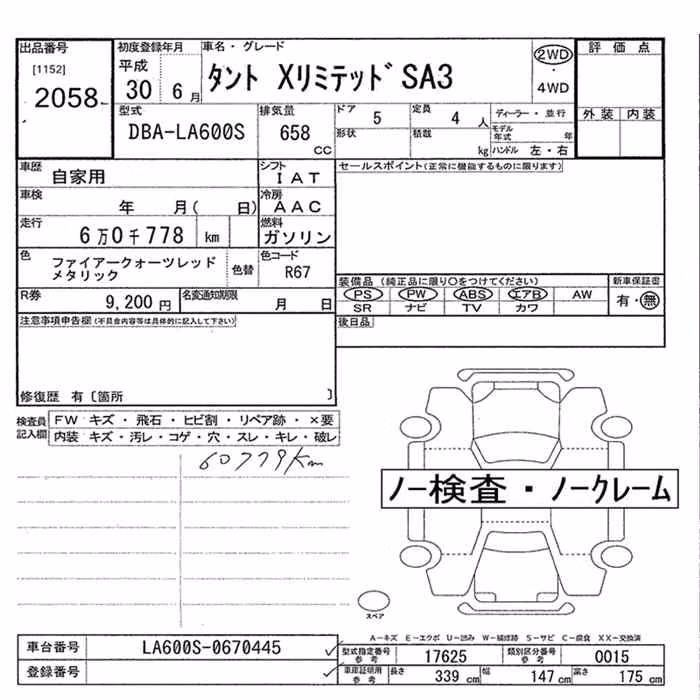 出品番号 初度登録年月 車名・グレード 評価点
[1152] 平成 タント XリミテッドSA3 2WD
2058 30 6月 ・ 4WD
型式 排気量 ドア 5 定員 4人 ディーラー・並行 外装 内装
DBA-LA600S 658cc 形状 積載 kg モデル年式 年
ハンドル 左・右
車歴 自家用 シフト IAT セールスポイント(正常に機能するものに限ります)
車検 年 月( 日) 冷房 AAC
走行 6万0千778 km 燃料 ガソリン
色 ファイアークォーツレッド 色替 色コード
メタリック R67
装備品(純正品に限り○をつけてください) 新車保証書
PS PW ABS エアB AW 有・無
SR ナビ TV カワ
R券 9,200円 名変通知期限 月 日
注意事項申告欄(不具合内容等は具体的に記入して下さい) 後日品
修復歴 有〔箇所 〕
検査員記入欄 FW キズ・飛石・ヒビ割・リペア跡・×要
内装 キズ・汚レ・コゲ・穴・スレ・キレ・破レ
60779Km
ノー検査・ノークレーム
スペア
A-キズ E-エクボ U-凹み W-補修跡 S-サビ C-腐食 XX-交換済
車台番号 LA600S-0670445 型式指定番号参考 17625 類別区分番号参考 0015
登録番号 車庫証明用参考 長さ 339cm 幅 147cm 高さ 175cm